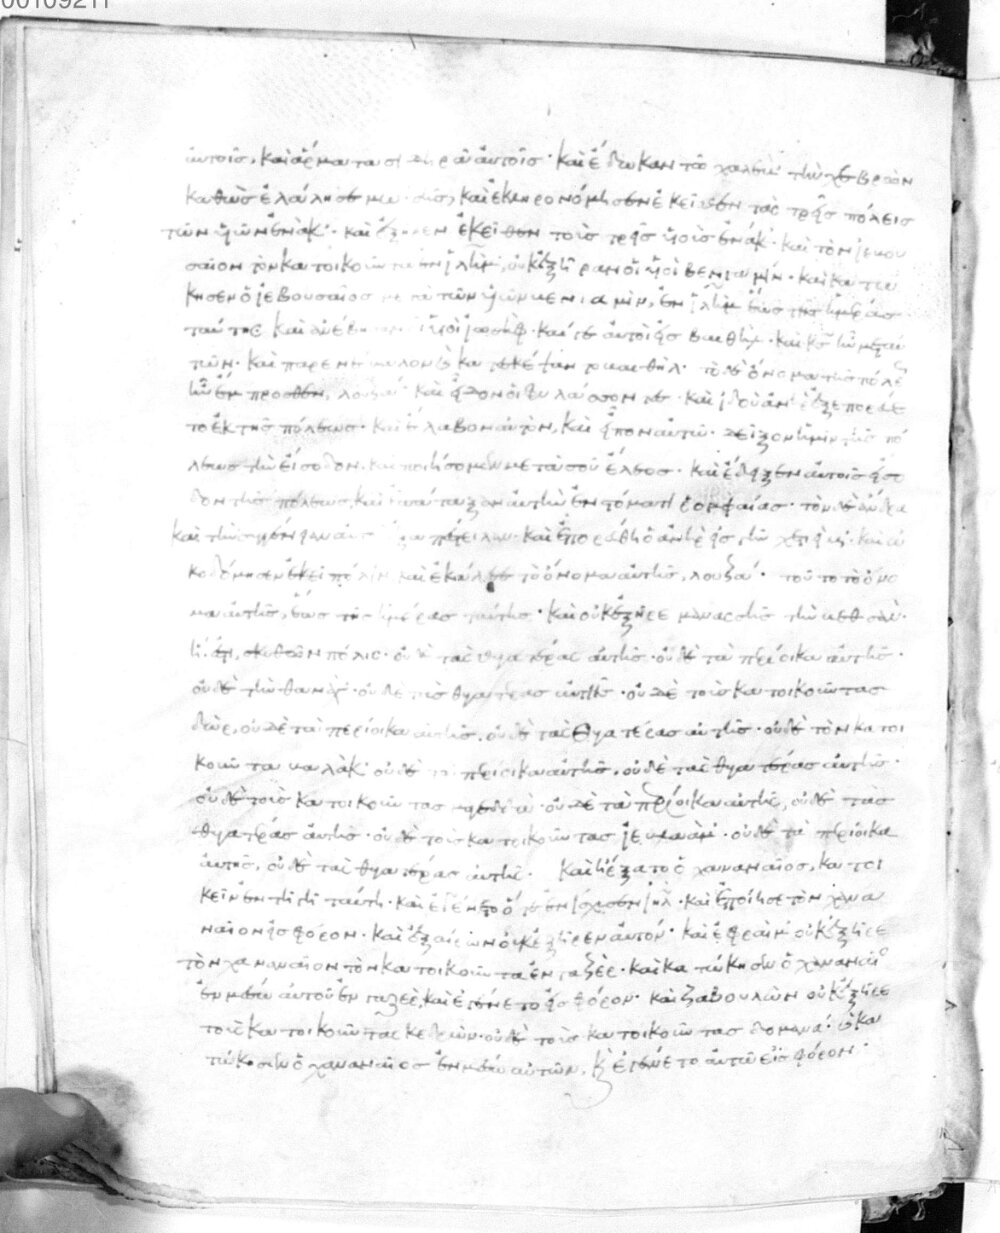 00109211
αὐτοῖς, καὶ ἅρματα σιδηρᾶ αὐτοῖς· καὶ ἔδωκαν τῶ χαλὲβ τὴν χεβρὼν
καθὼς ἐλάλησε μωυσῆς, καὶ ἐκληρονόμησεν ἐκεῖθεν τὰς τρεῖς πόλεις
τῶν υἱῶν ἐνάκ· καὶ ἐξῆρεν ἐκεῖθεν τοὺς τρεῖς υἱοὺς ἐνάκ· καὶ τὸν ϊεβου
σαῖον τὸν κατοικοῦντα ἐν ιλημ, οὐκ ἐξῆραν οἱ υἱοὶ βενιαμίν· καὶ κατώ
κησεν ὁ ϊεβουσαῖος μετὰ τῶν υἱῶν βενιαμὶν, ἐν ιλημ ἕως τῆς ἡμέρας
ταύτης· καὶ ἀνέβησαν οἱ υἱοὶ ϊωσὴφ· καί γε αὐτοὶ εἰς βαιθὴλ· καὶ κς ἦν μετ' αὐ
τῶν· καὶ παρενέβαλον καὶ κατεσκέψαντο βαιθήλ· τὸ δὲ ὄνομα τῆς πόλε
ἦν ἔμπροσθεν, λουζά· καὶ εἶδον οἱ φυλάσσοντες· καὶ ϊδοὺ ἀνὴρ ἐξεπορεύε
το ἐκ τῆς πόλεως· καὶ ἔλαβον αὐτὸν, καὶ εἶπον αὐτῶ· δεῖξον ἡμῖν τῆς πό
λεως τὴν εἴσοδον· καὶ ποιήσομεν μετὰ σοῦ ἔλεος· καὶ ἔδειξεν αὐτοῖς εἴσο
δον τῆς πόλεως, καὶ ἐπάταξαν αὐτὴν ἐν στόματι ῥομφαίας· τὸν δὲ ἄνδρα
καὶ τὴν συγγένειαν αὐτοῦ ἐξαπέστειλαν· καὶ ἐπορεύθη ὁ ἀνὴρ εἰς γῆν χετιείμ· καὶ ὠ
κοδόμησεν ἐκεῖ πόλιν καὶ ἐκάλεσε τὸ ὄνομα αὐτῆς, λουζά· τοῦτο τὸ ὄνο
μα αὐτῆς, ἕως τῆς ἡμέρας ταύτης· καὶ οὐκ ἐξῆρε μανασσῆς τὴν βεθσὰν·
ἥ ἐστι, σκυθῶν πόλις· οὐδὲ τὰς θυγατέρας αὐτῆς· οὐδὲ τὰ περίοικα αὐτῆς·
οὐδὲ τὴν θανάχ· οὐδὲ τὰς θυγατέρας αὐτῆς· οὐδὲ τοὺς κατοικοῦντας
δὼρ, οὐδὲ τὰ περίοικα αὐτῆς, οὐδὲ τὰς θυγατέρας αὐτῆς· οὐδὲ τὸν κατοι
κοῦντα βαλὰκ· οὐδὲ τὰ περίοικα αὐτῆς, οὐδὲ τὰς θυγατέρας αὐτῆς·
οὐδὲ τοὺς κατοικοῦντας μαγεδδώ· οὐδὲ τὰ περίοικα αὐτῆς, οὐδὲ τὰς
θυγατέρας αὐτῆς· οὐδὲ τοὺς κατοικοῦντας ϊεβλαάμ· οὐδὲ τὰ περίοικα
αὐτῆς, οὐδὲ τὰς θυγατέρας αὐτῆς· καὶ ἤρξατο ὁ χαναναῖος, κατοι
κεῖν ἐν τῆ γῆ ταύτη· καὶ ἐγένετο ὅτε ἐνίσχυσεν ιηλ· καὶ ἐποίησε τὸν χανα
ναῖον εἰς φόρον· καὶ ἐξαίρων οὐκ ἐξῆρεν αὐτόν· καὶ ἐφραϊμ οὐκ ἐξῆρε
τὸν χαναναῖον τὸν κατοικοῦντα ἐν γαζέρ· καὶ κατώκησεν ὁ χαναναῖο
ἐν μέσω αὐτοῦ ἐν γαζέρ, καὶ ἐγένετο εἰς φόρον· καὶ ζαβουλὼν οὐκ ἐξῆρε
τοὺς κατοικοῦντας κεδρών· οὐδὲ τοὺς κατοικοῦντας δομανά· καὶ κα
τώκησεν ὁ χαναναῖος ἐν μέσω αὐτῶν, καὶ ἐγένετο αὐτῶ εἰς φόρον·